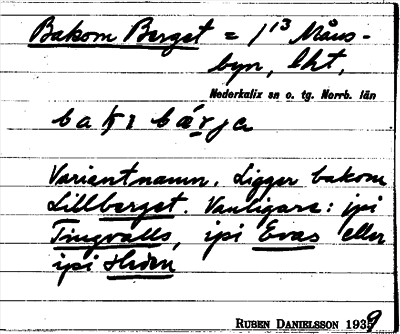 Bakom Berget = 1¹³ Månsbyn, lht.
Nederkalix sn o. tg. Norrb. län
Variantnamn. Ligger bakom
Lillberget. Vanligare: ipi
Tingvalls, ipi Evas eller
ipi
RUBEN DANIELSSON 1939